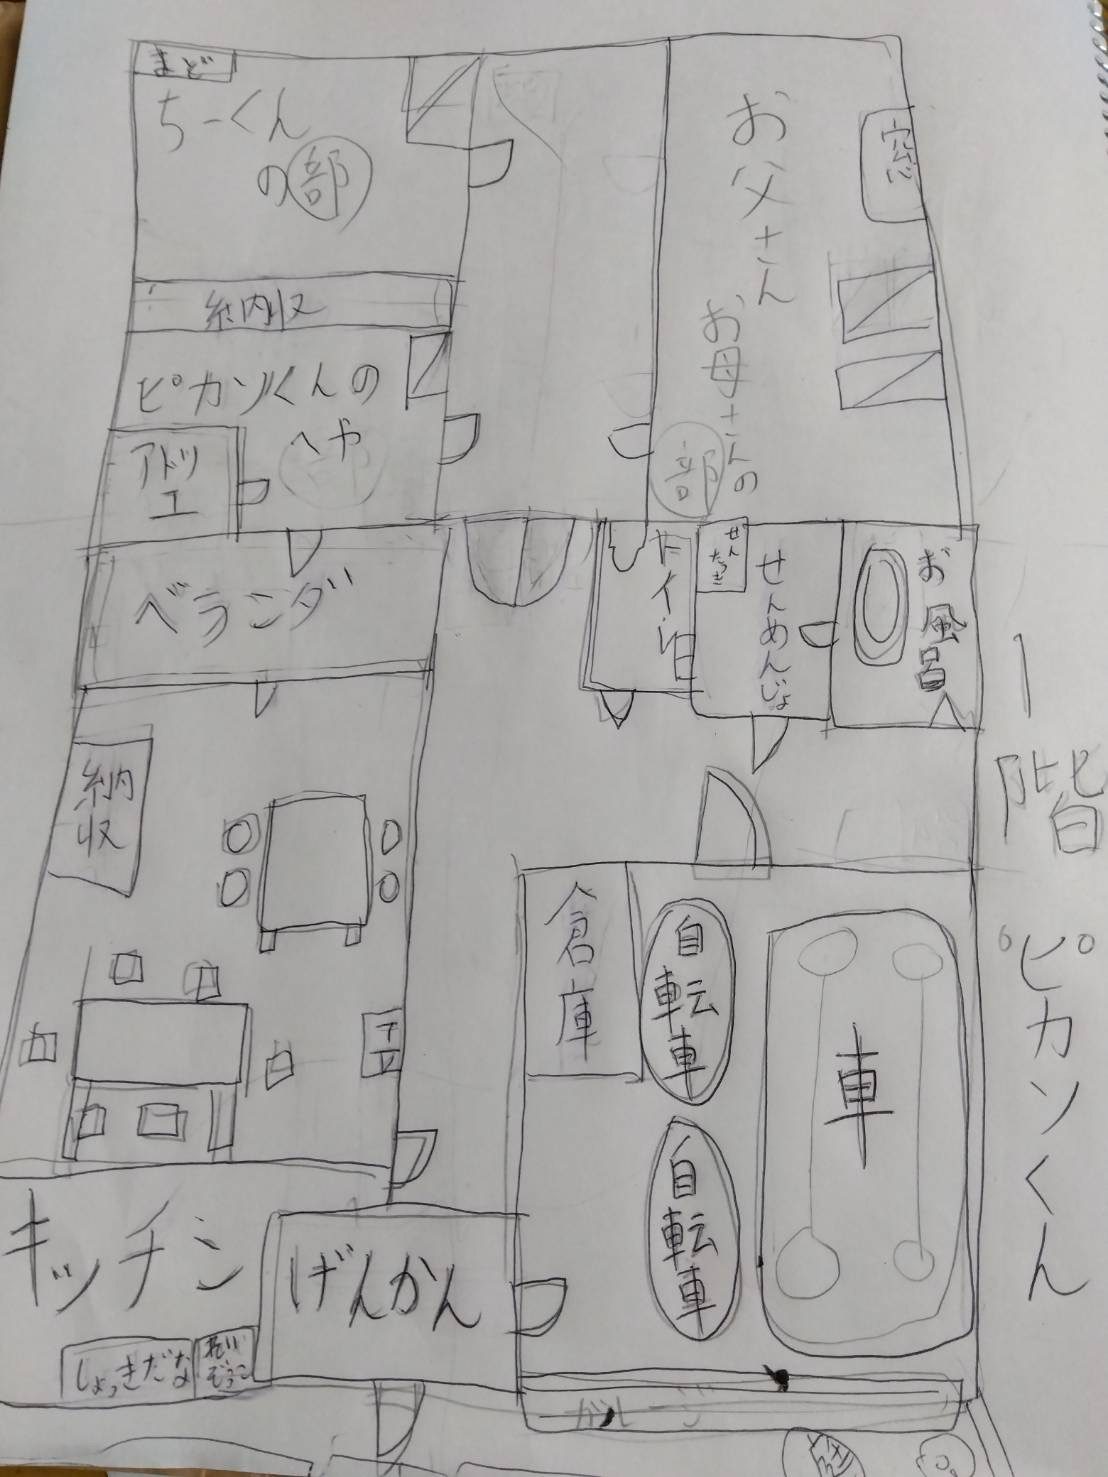 まど
ちーくん
の部
窓
お父さん
お母さんの
部
納収
ピカソくんの
へや
アトリ
エ
ベランダ
トイレ
せん
たっき
せんめんじょ
お風呂
1階
ピカソくん
納
収
倉庫
自転車
車
自転車
キッチン
げんかん
しょっきだな
れい
ぞうこ
ガレージ